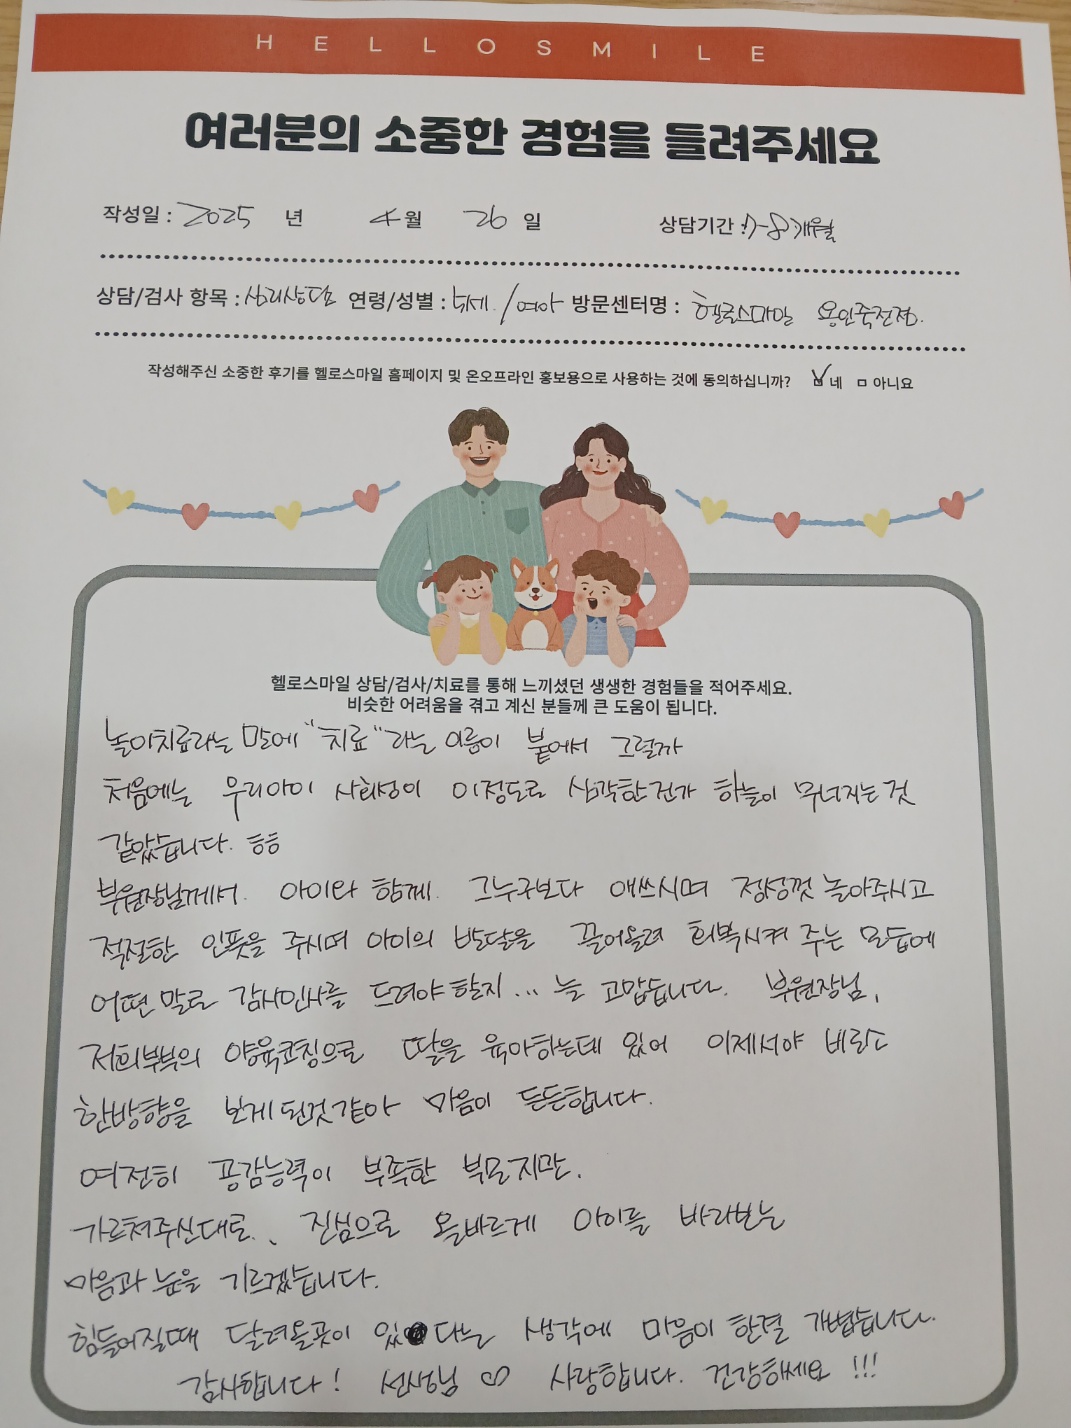 HELLOSMILE
여러분의 소중한 경험을 들려주세요
작성일 : 2025 년 4월 26 일 상담기간 : 7-8개월
상담/검사 항목 : 심리상담 연령/성별 : 5세. /여아 방문센터명 : 헬로스마일 용인죽전점.
작성해주신 소중한 후기를 헬로스마일 홈페이지 및 온오프라인 홍보용으로 사용하는 것에 동의하십니까? ☑네 □아니요
헬로스마일 상담/검사/치료를 통해 느끼셨던 생생한 경험들을 적어주세요.
비슷한 어려움을 겪고 계신 분들께 큰 도움이 됩니다.
놀이치료라는 말에 "치료"라는 이름이 붙어서 그럴까
처음에는 우리아이 사회성이 이정도로 심각한건가 하늘이 무너지는것
같았습니다. ㅎㅎ
부원장님께서. 아이와 함께. 그누구보다 애쓰시며 정성껏 놀아주시고
적절한 인풋을 주시며 아이의 발달을 끌어올려 회복시켜 주는 모습에
어떤 말로 감사인사를 드려야 할지... 늘 고맙습니다. 부원장님,
저희부부의 양육코칭으로 딸을 육아하는데 있어 이제서야 바른
한방향을 보게 된것같아 마음이 든든합니다.
여전히 공감능력이 부족한 부모지만.
가르쳐주신대로.. 진심으로 올바르게 아이를 바라보는
마음과 눈을 기르겠습니다.
힘들어질때 달려올곳이 있다는 생각에 마음이 한결 개볍습니다.
감사합니다! 선생님 ♡ 사랑합니다. 건강하세요 !!!